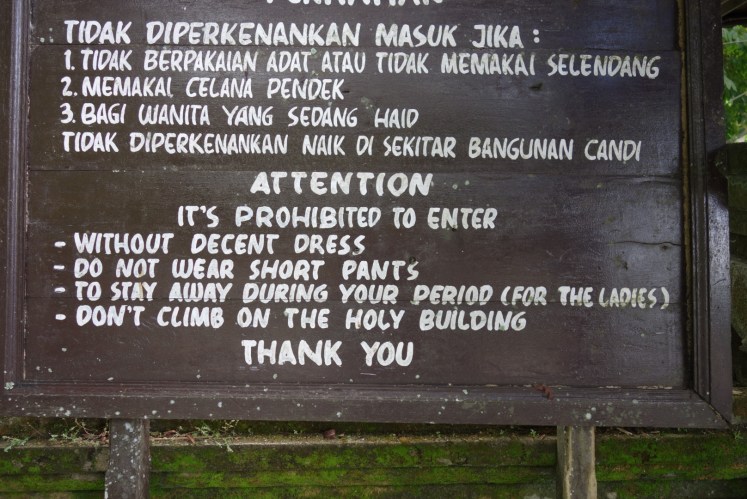 TIDAK DIPERKENANKAN MASUK JIKA :
1. TIDAK BERPAKAIAN ADAT ATAU TIDAK MEMAKAI SELENDANG
2. MEMAKAI CELANA PENDEK
3. BAGI WANITA YANG SEDANG HAID
TIDAK DIPERKENANKAN NAIK DI SEKITAR BANGUNAN CANDI
ATTENTION
IT'S PROHIBITED TO ENTER
- WITHOUT DECENT DRESS
- DO NOT WEAR SHORT PANTS
- TO STAY AWAY DURING YOUR PERIOD (FOR THE LADIES)
- DON'T CLIMB ON THE HOLY BUILDING
THANK YOU